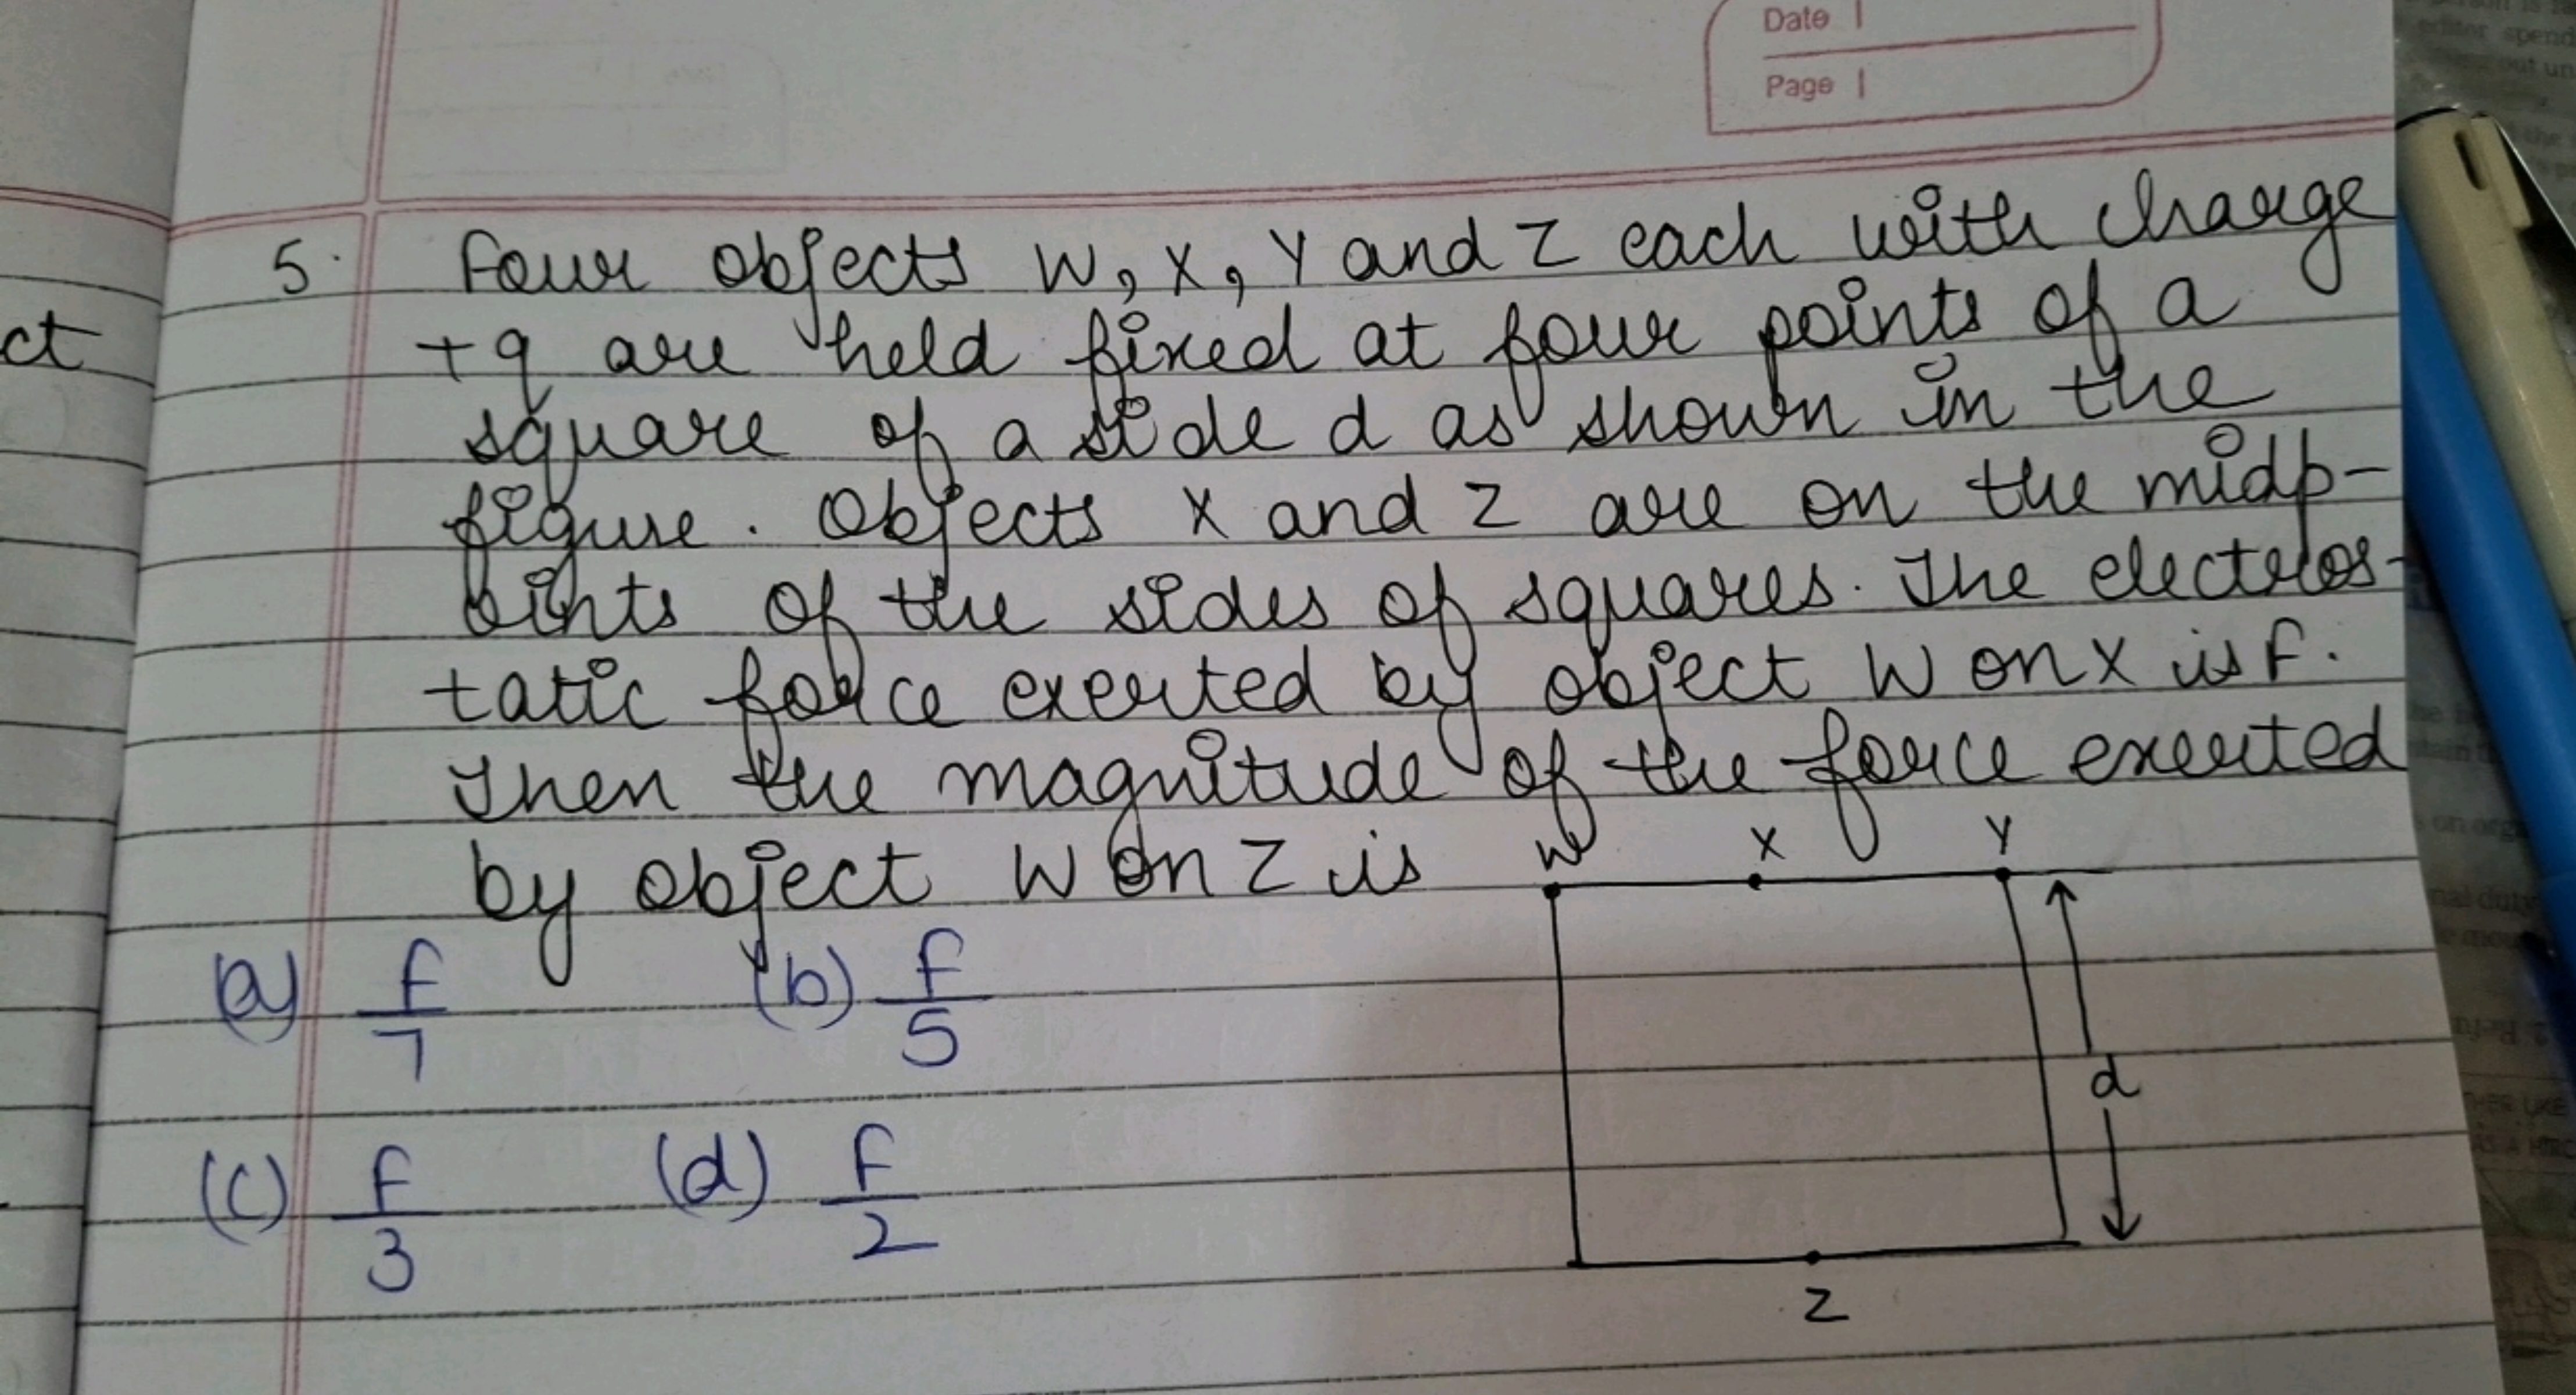 Date
Page
5. Four objects W, X, Y and Z each with charge
ct
+q are held fixed at four points of a
square of a side d as shown in the
figure. Objects X and Z are on the midp-
oints of the sides of squares. The electros-
tatic force exerted by object W on X is F.
Then the magnitude of the force exerted
by object W on Z is
W X Y
(a) F/7 (b) F/5
d
(c) F/3 (d) F/2
Z